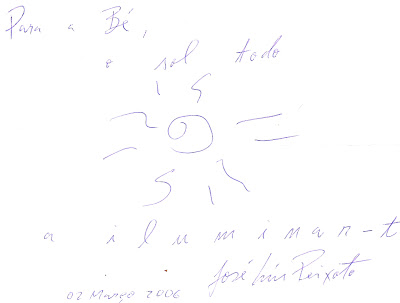 Para a Bé,
o sol todo
a iluminar-t
José Luís Peixoto
02 Março 2006